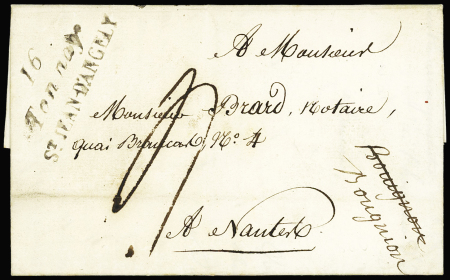 16
Tonnay
ST JEAN-D'ANGELY
A Monsieur
Monsieur Brard, Notaire,
quai Brancas, No. 4
A Nantes
Bougnion